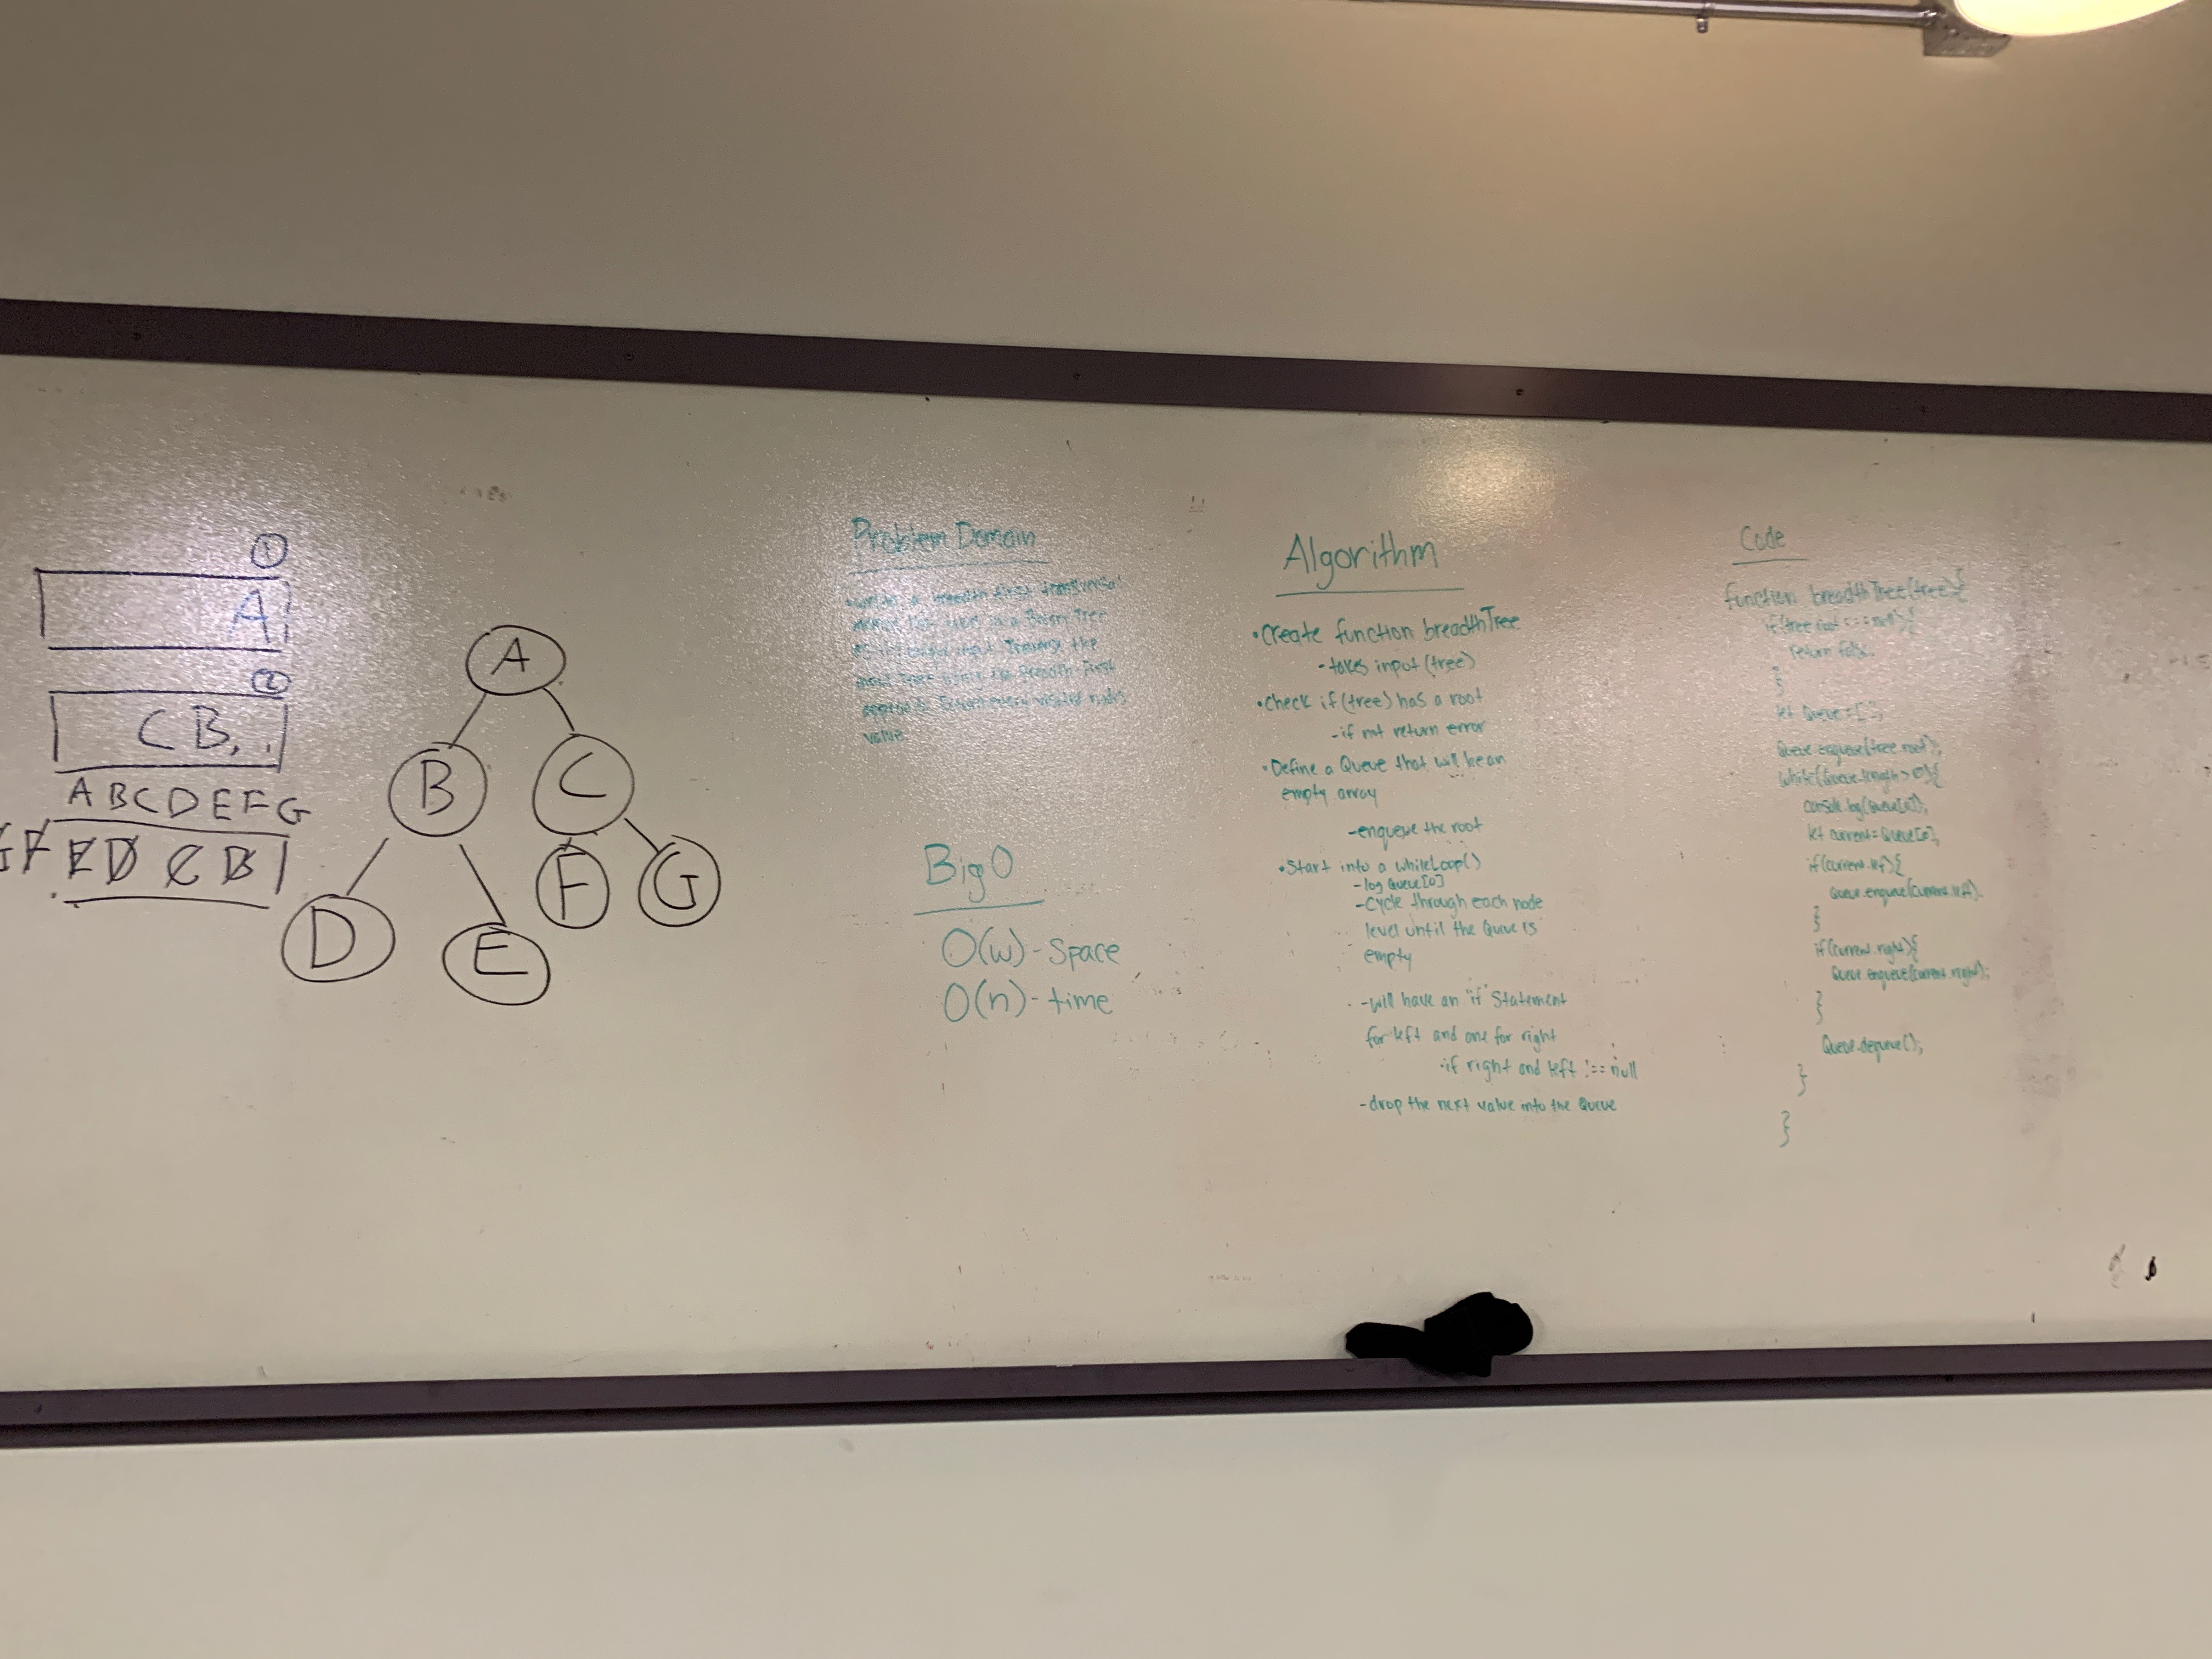 ①
A
②
C B
A B C D E F G
G F E D C B
A
B
C
D
E
F
G
Problem Domain
• Write a breadth first traversal
takes in a Binary Tree
input. Traverse the
tree using the Breadth-First
approach. Return every visited node's
value
Big O
O(w) - Space
O(n) - time
Algorithm
• Create function breadthTree
- takes input (tree)
• Check if (tree) has a root
- if not return error
• Define a Queue that will be an
empty array
- enqueue the root
• Start into a whileLoop()
- log Queue[0]
- Cycle through each node
level until the Queue is
empty
- will have an "if" Statement
for left and one for right
• if right and left !== null
- drop the next value into the Queue
Code
function breadthTree(tree){
if(tree.root === null){
return false.
}
let Queue = [];
Queue.enqueue(tree.root);
while(Queue.length > 0){
console.log(Queue[0]);
let current = Queue[0];
if(current.left){
Queue.enqueue(current.left).
}
if(current.right){
Queue.enqueue(current.right);
}
Queue.dequeue();
}
}